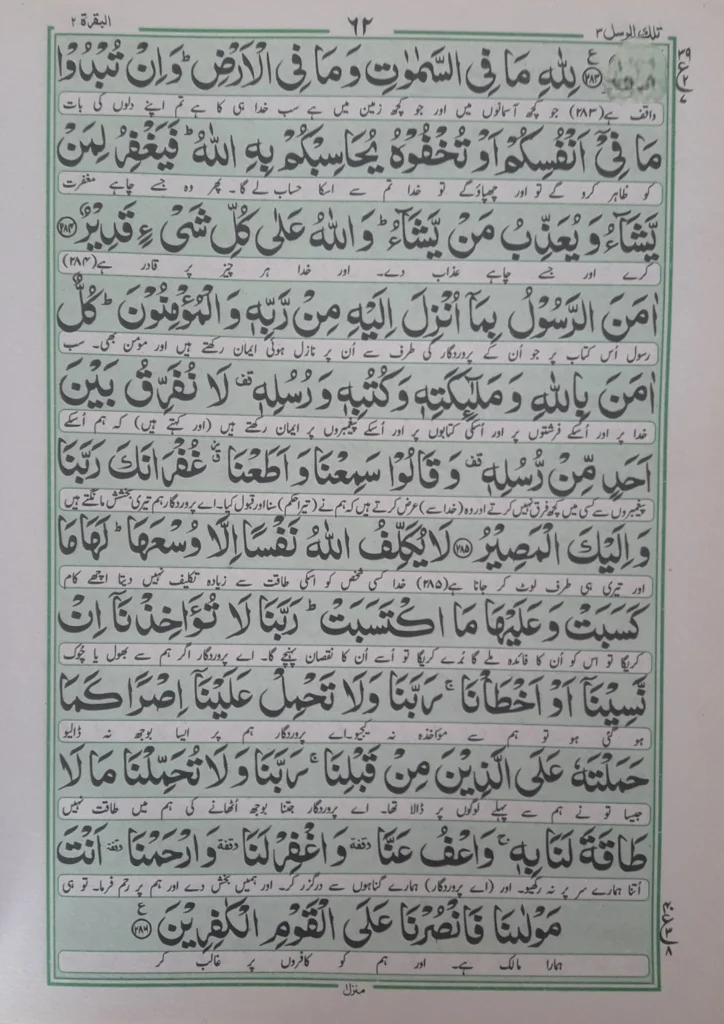 تلك الرسل ۳ ٦٢ البقرة ۲
لِلّٰهِ مَا فِی السَّمٰوٰتِ وَمَا فِی الْاَرْضِ ؕ وَاِنْ تُبْدُوْا
واقف ہے(۲۸۳) جو کچھ آسمانوں میں اور جو کچھ زمین میں ہے سب خدا ہی کا ہے تم اپنے دلوں کی بات
مَا فِیْۤ اَنْفُسِكُمْ اَوْ تُخْفُوْهُ یُحَاسِبْكُمْ بِهِ اللّٰهُ ؕ فَیَغْفِرُ لِمَنْ
کو ظاہر کرو گے تو اور چھپاؤگے تو خدا تم سے اسکا حساب لے گا۔ پھر وہ جسے چاہے مغفرت
یَّشَآءُ وَ یُعَذِّبُ مَنْ یَّشَآءُ ؕ وَاللّٰهُ عَلٰی كُلِّ شَیْ ءٍ قَدِیْرٌ ﴿۲۸۴﴾
کرے اور جسے چاہے عذاب دے۔ اور خدا ہر چیز پر قادر ہے(۲۸۴)
اٰمَنَ الرَّسُوْلُ بِمَاۤ اُنْزِلَ اِلَیْهِ مِنْ رَّبِّهٖ وَ الْمُؤْمِنُوْنَ ؕ كُلٌّ
رسول اُس کتاب پر جو اُن کے پروردگار کی طرف سے اُن پر نازل ہوئی ایمان رکھتے ہیں اور مؤمن بھی۔ سب
اٰمَنَ بِاللّٰهِ وَ مَلٰٓئِكَتِهٖ وَ كُتُبِهٖ وَ رُسُلِهٖ قف لَا نُفَرِّقُ بَیْنَ
خدا پر اور اُسکے فرشتوں پر اور اُسکی کتابوں پر اور اُسکے پیغمبروں پر ایمان رکھتے ہیں (اور کہتے ہیں) کہ ہم اُسکے
اَحَدٍ مِّنْ رُّسُلِهٖ قف وَ قَالُوْا سَمِعْنَا وَ اَطَعْنَا غُفْرَانَكَ رَبَّنَا
پیغمبروں سے کسی میں کچھ فرق نہیں کرتے اور وہ (خدا سے) عرض کرتے ہیں کہ ہم نے (تیرا حکم) سنا اور قبول کیا۔ اے پروردگار ہم تیری بخشش مانگتے ہیں
وَ اِلَیْكَ الْمَصِیْرُ ﴿۲۸۵﴾ لَا یُكَلِّفُ اللّٰهُ نَفْسًا اِلَّا وُسْعَهَا ؕ لَهَا مَا
اور تیری ہی طرف لوٹ کر جانا ہے(۲۸۵) خدا کسی شخص کو اسکی طاقت سے زیادہ تکلیف نہیں دیتا اچھے کام
كَسَبَتْ وَ عَلَیْهَا مَا اكْتَسَبَتْ ؕ رَبَّنَا لَا تُؤَاخِذْنَاۤ اِنْ
کریگا تو اس کو اُن کا فائدہ ملے گا بُرے کریگا تو اُسے اُن کا نقصان پہنچے گا۔ اے پروردگار اگر ہم سے بھول یا چُوک
نَّسِیْنَاۤ اَوْ اَخْطَاْنَا ۚ رَبَّنَا وَلَا تَحْمِلْ عَلَیْنَاۤ اِصْرًا كَمَا
ہو گئی ہو تو ہم سے مؤاخذہ نہ کیجیو۔اے پروردگار ہم پر ایسا بوجھ نہ ڈالیو
حَمَلْتَهٗ عَلَی الَّذِیْنَ مِنْ قَبْلِنَا ۚ رَبَّنَا وَ لَا تُحَمِّلْنَا مَا لَا
جیسا تو نے ہم سے پہلے لوگوں پر ڈالا تھا۔ اے پروردگار جتنا بوجھ اُٹھانے کی ہم میں طاقت نہیں
طَاقَةَ لَنَا بِهٖ ۚ وَاعْفُ عَنَّا وقفة وَ اغْفِرْ لَنَا وقفة وَ ارْحَمْنَا وقفة اَنْتَ
اُتنا ہمارے سر پر نہ رکھیو۔ اور (اے پروردگار) ہمارے گناہوں سے درگزر کر۔ اور ہمیں بخش دے اور ہم پر رحم فرما۔ تو ہی
مَوْلٰىنَا فَانْصُرْنَا عَلَی الْقَوْمِ الْكٰفِرِیْنَ ﴿۲۸۶﴾
ہمارا مالک ہے۔ اور ہم کو کافروں پر غالب کر
منزل